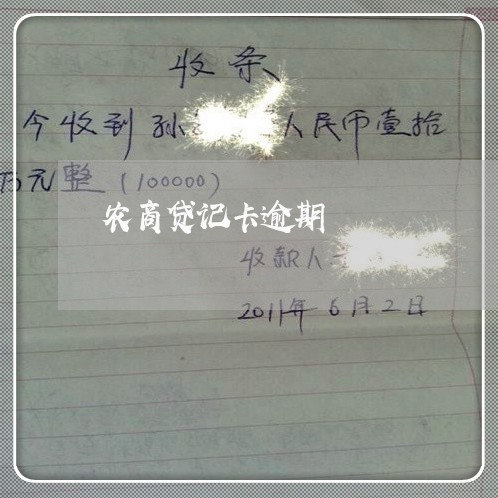 收条
今收到孙 人民币壹拾
万元整（100000）
农商贷记卡逾期
收款人
2011年6月2日